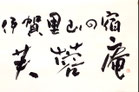 伊賀里山の宿
芙蓉庵